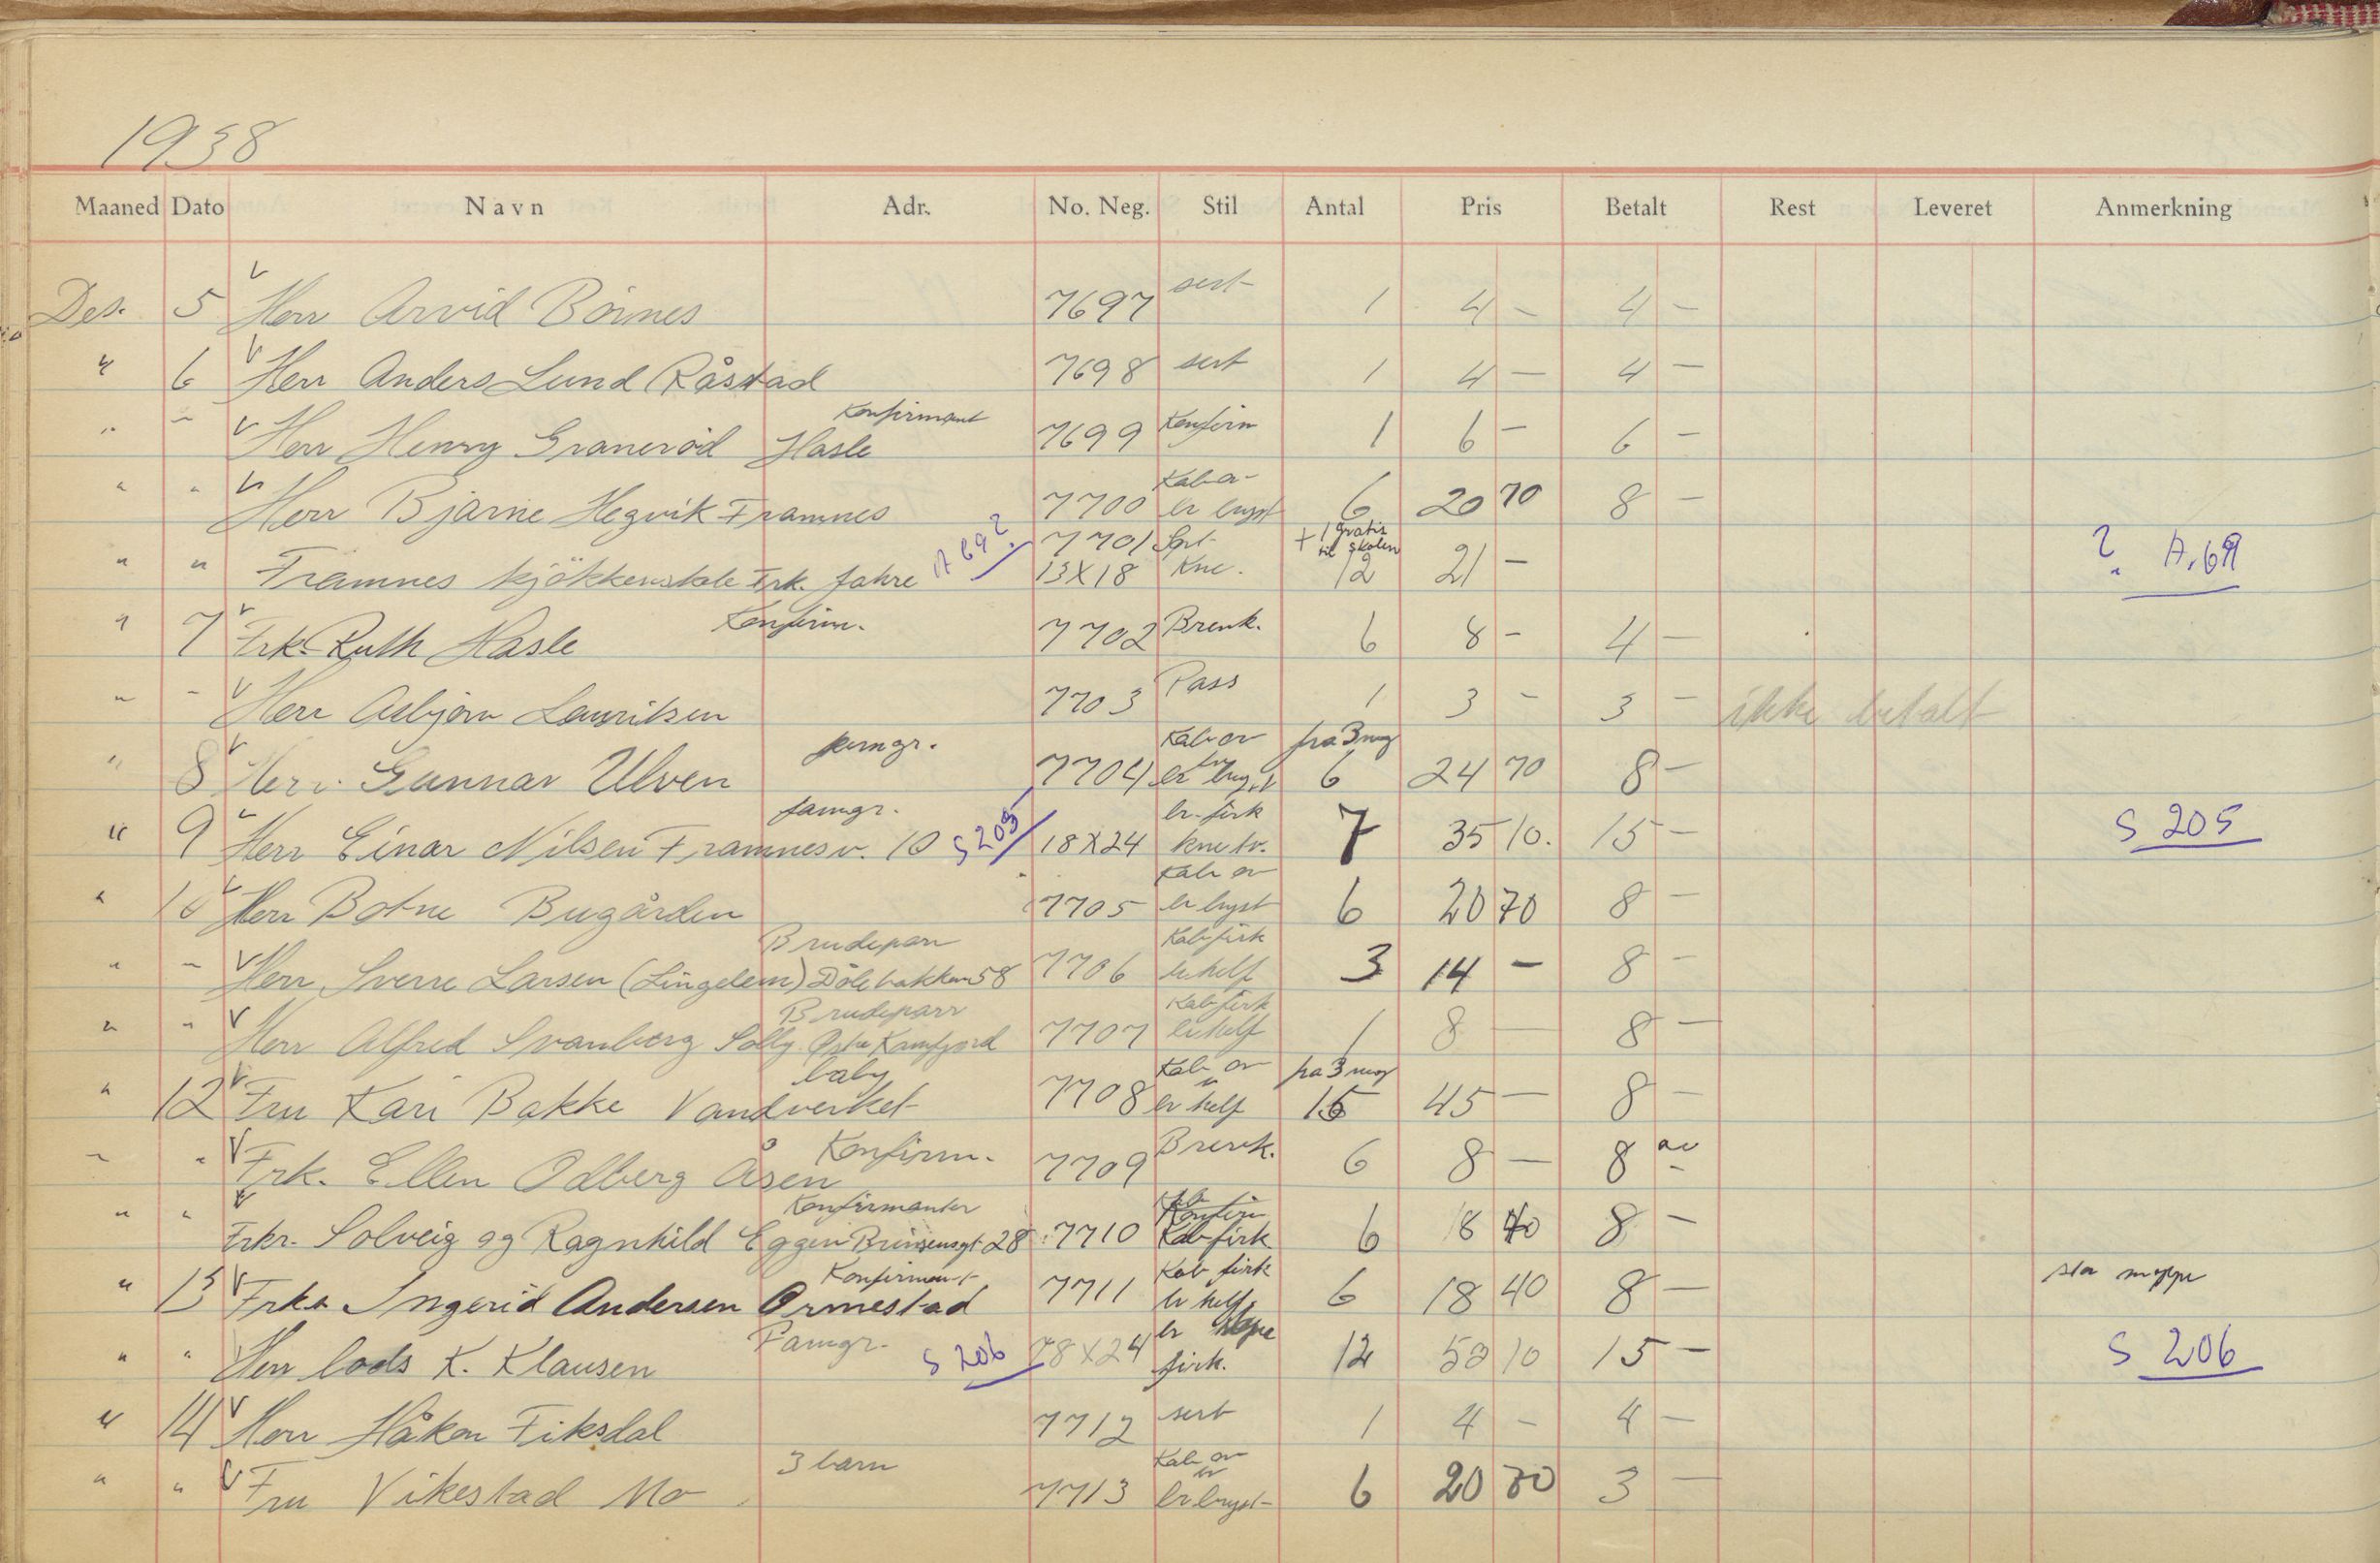 1938
Maaned Dato Navn Adr. No. Neg. Stil Antal Pris Betalt Rest Leveret Anmerkning
Des. 5 Herr Arvid Böines 7697 sert 1 4 - 4 -
" 6 Herr Anders Lund Råstad 7698 sert 1 4 - 4 -
Konfirmant
" " Herr Henry Graneröd Hasle 7699 Konfirm 1 6 - 6 -
Kab a-
" " Herr Bjarne Hegvik Framnes 7700 br bryst 6 20 70 8 -
7701 + 1 gratis til skolen
" " Framnes kjökkenskole Frk. Jahre A 69 ? 13X18 Kne. 12 21 - ? A.69
Konfirm.
" 7 Frk. Ruth Hasle 7702 Brevk. 6 8 - 4 -
" " Herr Asbjørn Lauritsen 7703 Pass 1 3 - 3 - ikke betalt
Kab ov fra 3 neg
" 8 Herr. Gunnar Ulven 7704 br bryst 6 24 70 8 -
famgr. br. firk
" 9 Herr Einar Nilsen Framnesv. 10 S 205 18X24 kne br. 7 35 10. 15 - S 205
Kab ov
" 10 Herr Botne Bugården 7705 br bryst 6 20 70 8 -
Brudepar Kab firk
" " Herr Sverre Larsen (Lingelem) Dölebakken 58 7706 br helf 3 14 - 8 -
Brudeparr Kab firk
" " Herr Alfred Svanberg Solly Østre Kamfjord 7707 br helf 1 8 - 8 -
baby Kab ov fra 3 neg
" 12 Fru Kari Bakke Vandverket 7708 br helf 15 45 - 8 -
Konfirm.
" " Frk. Ellen Odberg Åsen 7709 Brevk. 6 8 - 8 av -
Konfirmanter
" " Frkr. Solveig og Ragnhild Eggen 28 7710 Kab firk 6 18 40 8 -
Konfirmant Kab firk
" 13 Frk. Ingerid Andersen Ormestad 7711 br helf 6 18 40 8 - stor mappe
Famgr.
" " Herr lods K. Klausen S 206 18X24 br firk. 12 50 10 15 - S 206
" 14 Herr Håkon Fiksdal 7712 sert 1 4 - 4 -
3 barn Kab ov
" " Fru Vikestad Mo 7713 br bryst 6 20 70 3 -